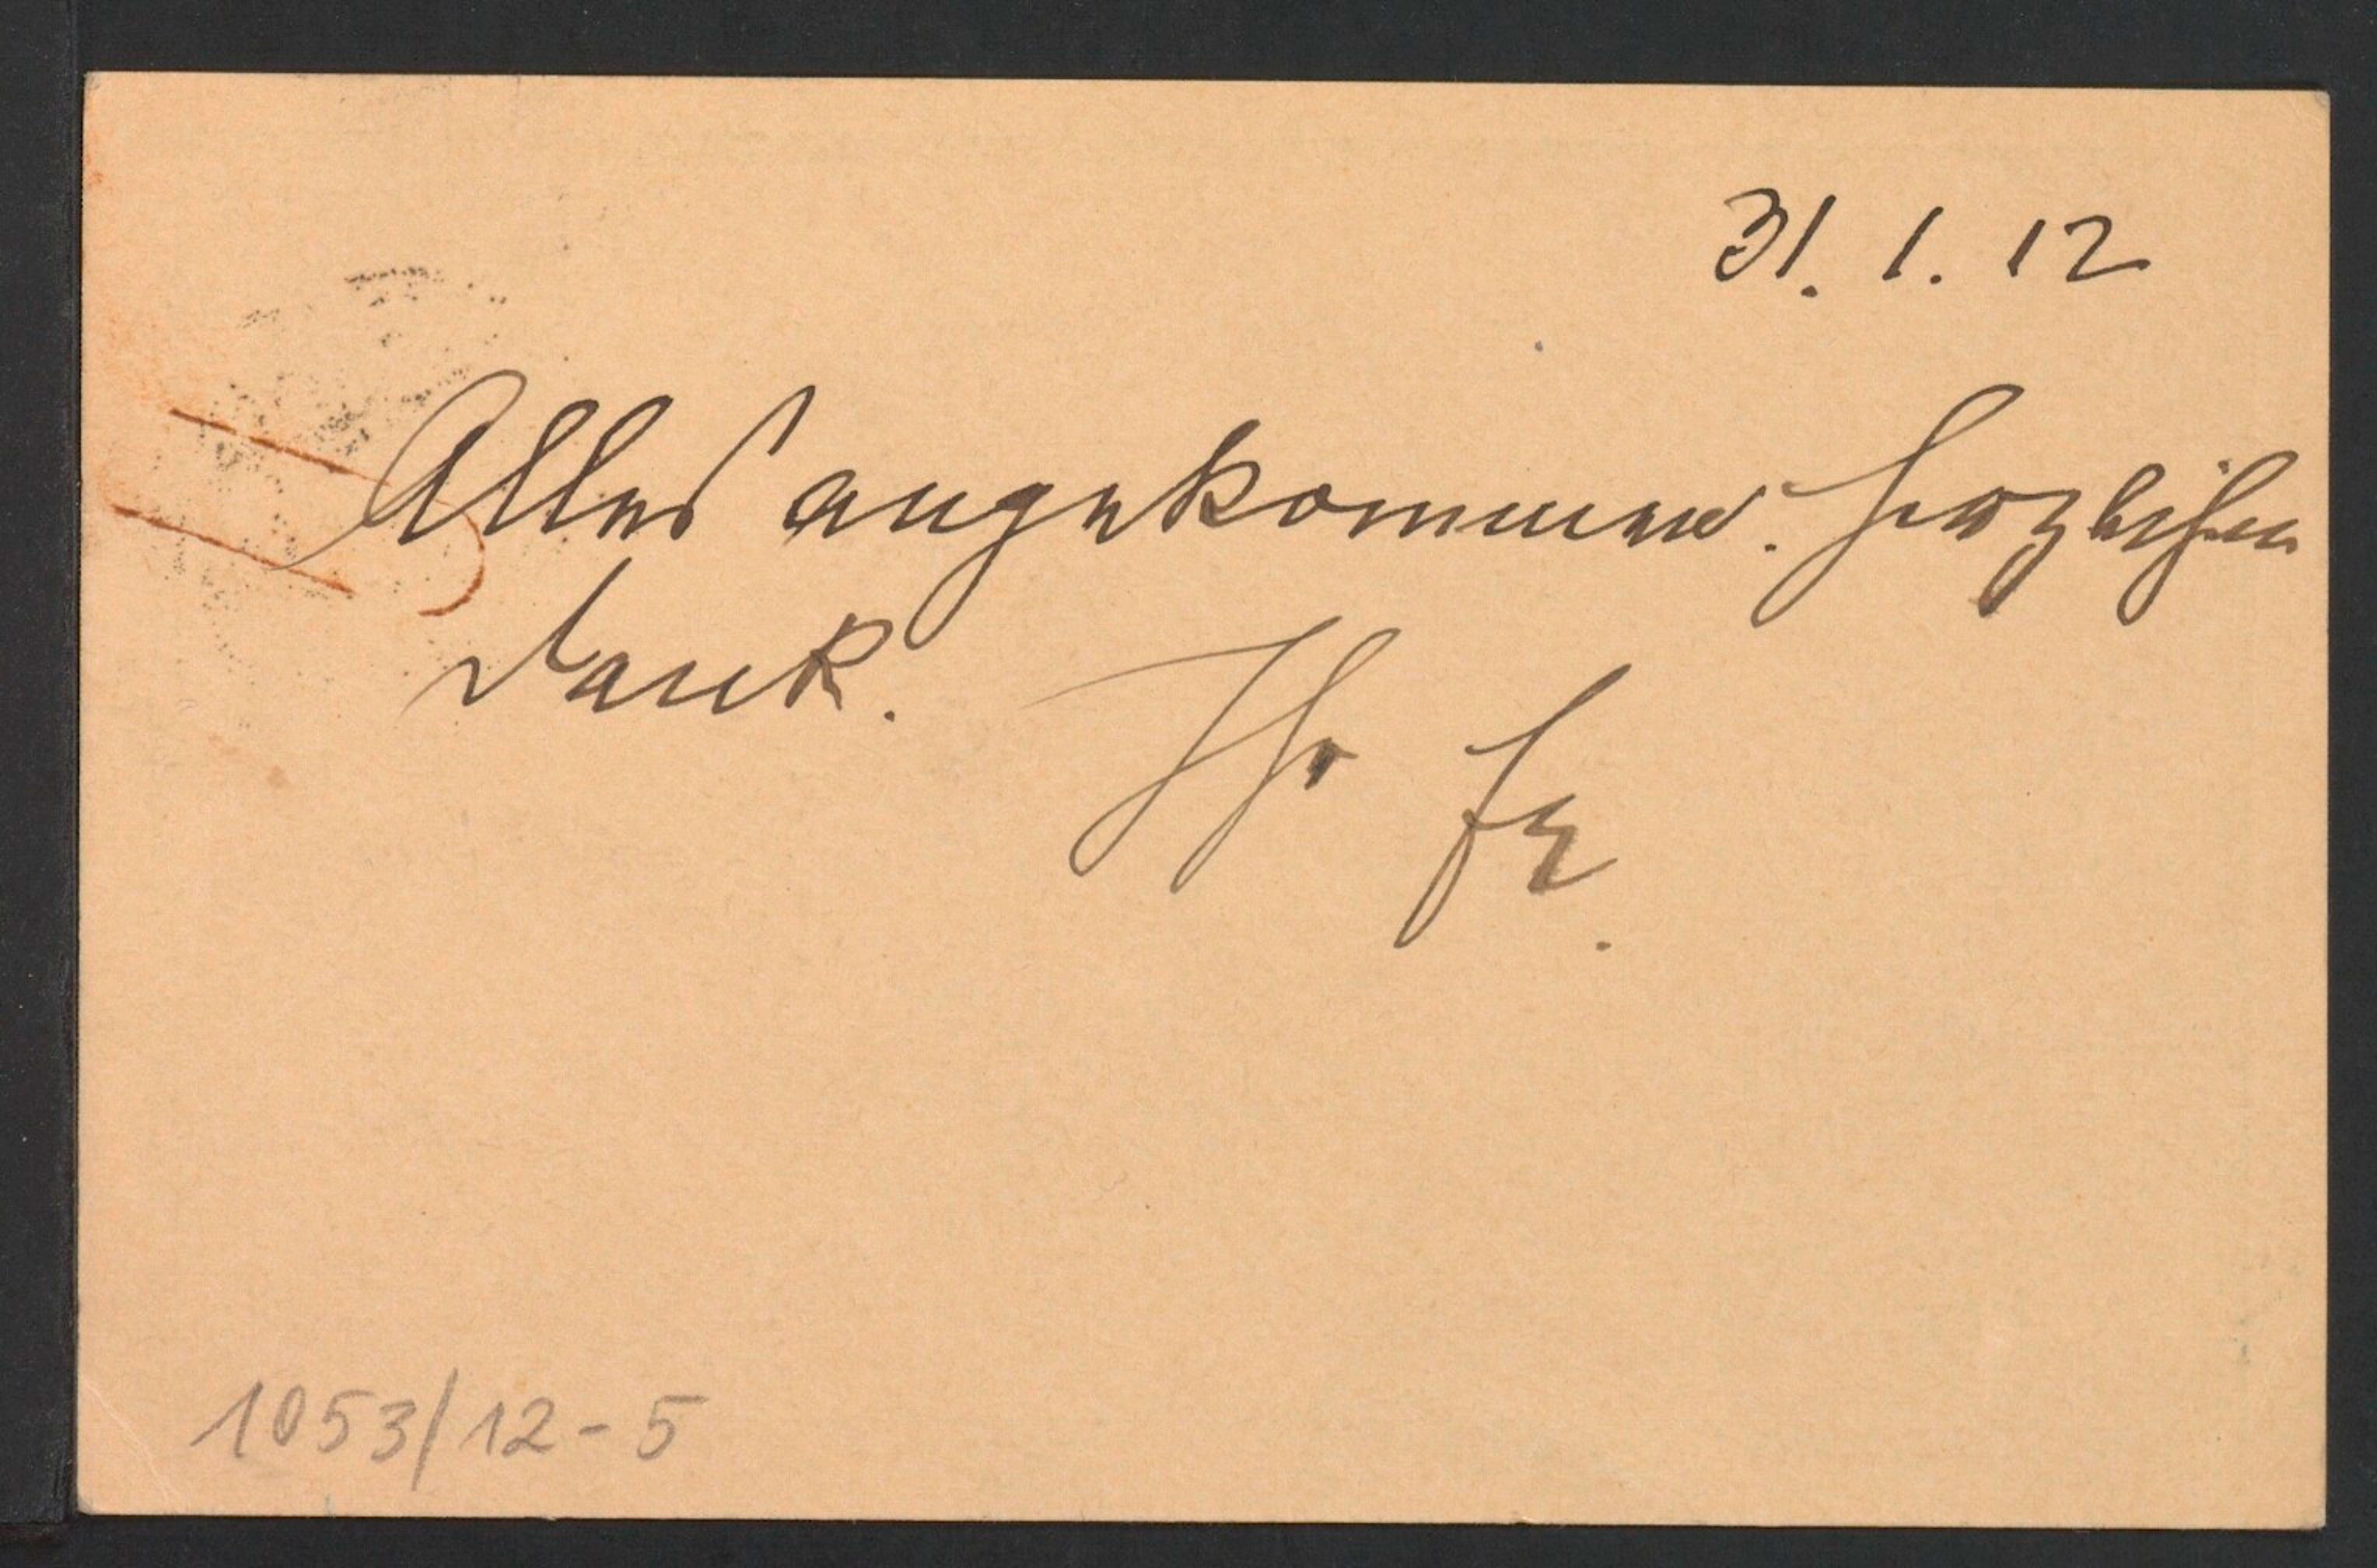 31. 1. 12
Alles angekommen. Herzlichen
Dank. Ihr
1053/12-5